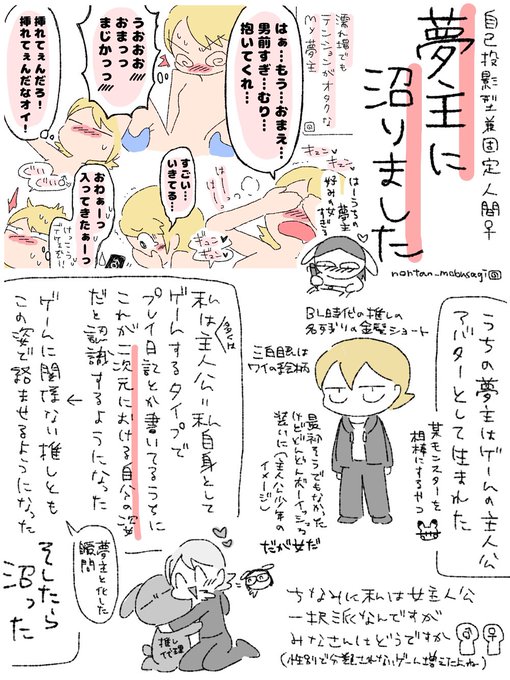 自己投影型兼固定人間♀
夢主に
沼りました
nontan_mobusagi
濡れ場でも
テンションがオタクな
My夢主
はぁ…もう…おまえ…
男前すぎ…むり…
抱いてくれ…
うおおお
おまっっ
まじかっっ
挿れてぇんだろ!
挿れてぇんだなオイ!
キュン
キュン
はーうちの
夢主
好みの女
すぎる
はーっ
はーっ
すごい…
いきてる…
ギュン
ギュン
ぐいっ
ぐいっ
おわぁーっ
入ってきたぁーっ
けっこう
うちの夢主はゲームの主人公
アバターとして生まれた
某モンスターを
相棒にするやつ
BL時代の推しの
名ずりの金髪ショート
三白眼は
ワイの絵柄
最初そうでもなかった
けどどんどんボーイッシュな
装いに(主人公少年の
イメージ)
だが女だ
私は主人公=私自身として
多くは
ゲームするタイプで
プレイ日記とか書いてるうちに
これが二次元における自分の姿
だと認識するようになった
↓
ゲームに関係ない推しとも
この姿で絡ませるようになった
夢主と化した
瞬間
そしたら
沼った
推し
代理
ちなみに私は女主人公
一択派なんですが
みなさんはどうですか
(性別で分類されないゲーム増えたよね)